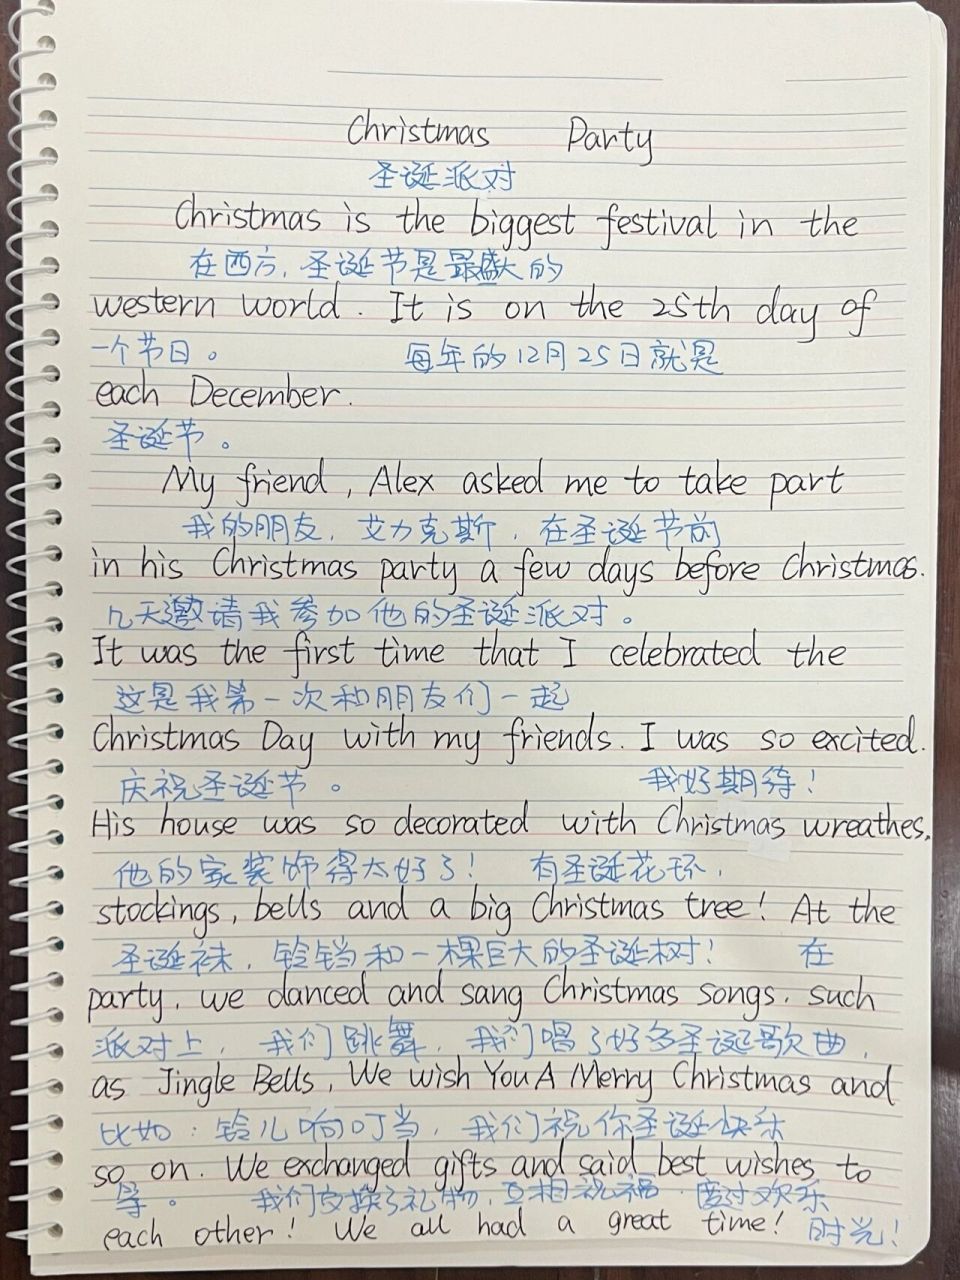 Christmas Party
圣诞派对
Christmas is the biggest festival in the
在西方，圣诞节是最盛大的
western world. It is on the 25th day of
一个节日。 每年的12月25日就是
each December.
圣诞节。
My friend, Alex asked me to take part
我的朋友，艾力克斯，在圣诞节前
in his Christmas party a few days before Christmas.
几天邀请我参加他的圣诞派对。
It was the first time that I celebrated the
这是我第一次和朋友们一起
Christmas Day with my friends. I was so excited.
庆祝圣诞节。 我好期待！
His house was so decorated with Christmas wreathes,
他的家装饰得太好了！ 有圣诞花环，
stockings, bells and a big Christmas tree! At the
圣诞袜，铃铛和一棵巨大的圣诞树！ 在
party, we danced and sang Christmas songs, such
派对上，我们跳舞，我们唱了好多圣诞歌曲，
as Jingle Bells, We wish You A Merry Christmas and
比如：铃儿响叮当，我们祝你圣诞快乐
so on. We exchanged gifts and said best wishes to
等。 我们交换了礼物，互相祝福，度过欢乐
each other! We all had a great time! 时光！